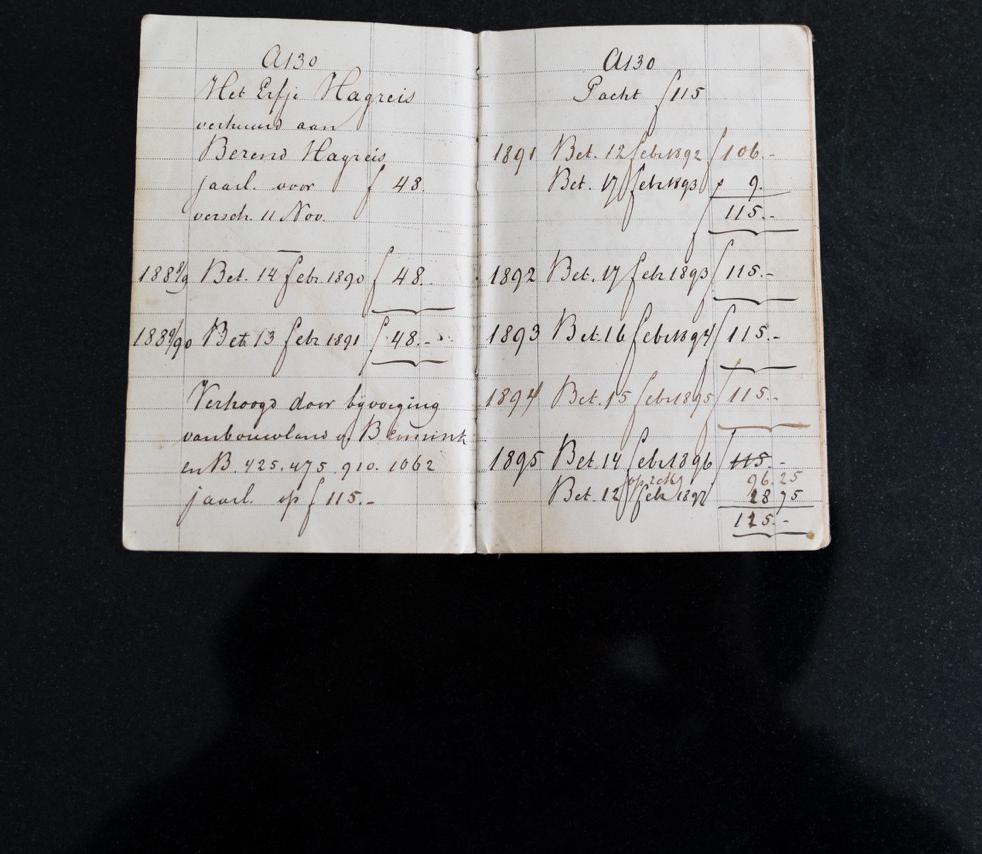 A130
Het Erfje Hagreis
verhuurd aan
Berend Hagreis
jaarl. voor f 48.
versch. 11 Nov.
1888/9 Bet. 14 febr. 1890 f 48.-
1889/90 Bet. 13 febr 1891 f 48.-
Verhoogd door bijvoeging
van bouwland v.
en B. 425. 475. 910. 1062
jaarl. op f 115.-
A130
Pacht f 115
1891 Bet. 12 febr 1892 f 106.-
Bet. 17 febr 1893 9.
115.-
1892 Bet. 17 febr 1893 f 115.-
1893 Bet. 16 febr 1894 f 115.-
1894 Bet. 15 febr 1895 f 115.-
1895 Bet. 14 febr 1896 f 115.-
op rek 96.25
Bet. 12 febr 1897 18 75
115.-